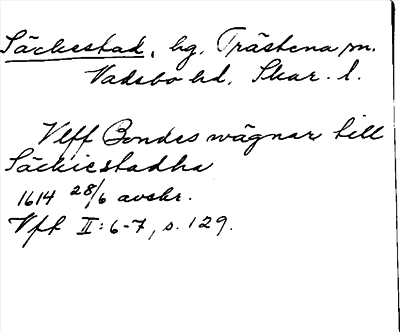 Säckestad, hg. Trästena sn.
Vadsbo hd. Skar. l.
Ulff Bondes wägnar till
Säckiestadha
1614 28/6 avskr.
Vfk II:6-7, s. 129.